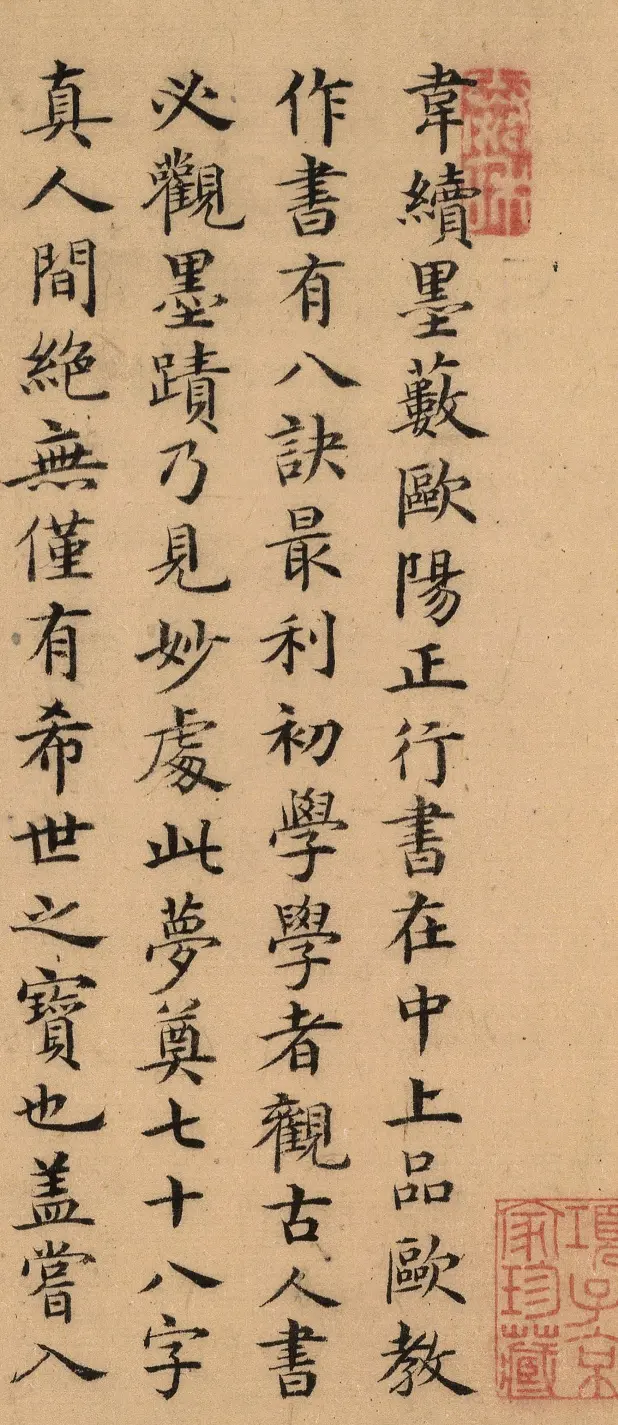 韋續墨藪歐陽正行書在中上品歐教
作書有八訣最利初學學者觀古人書
必觀墨蹟乃見妙處此夢奠七十八字
真人間絕無僅有希世之寶也蓋嘗入
項子京
家珍藏